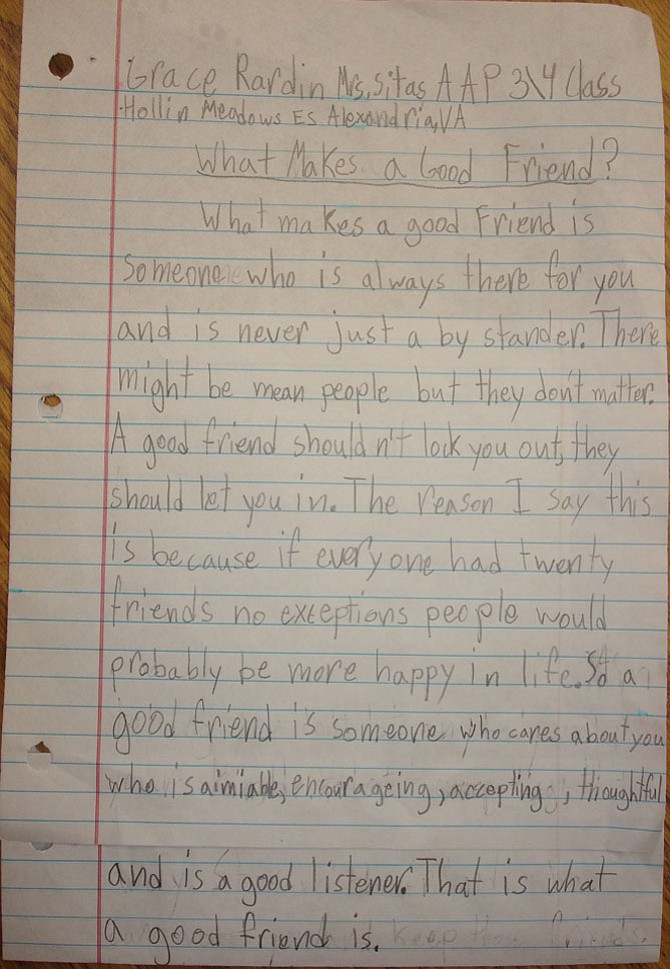 Grace Rardin Mrs. Sitas AAP 3\4 Class
Hollin Meadows ES Alexandria, VA
What Makes a Good Friend?
What makes a good Friend is
someone who is always there for you
and is never just a by stander. There
might be mean people but they don't matter.
A good friend shouldn't lock you out, they
should let you in. The reason I say this
is because if everyone had twenty
friends no exceptions people would
probably be more happy in life. So a
good friend is someone who cares about you
who is aimiable, encourageing, accepting, thoughtful
and is a good listener. That is what
a good friend is. keep friends.